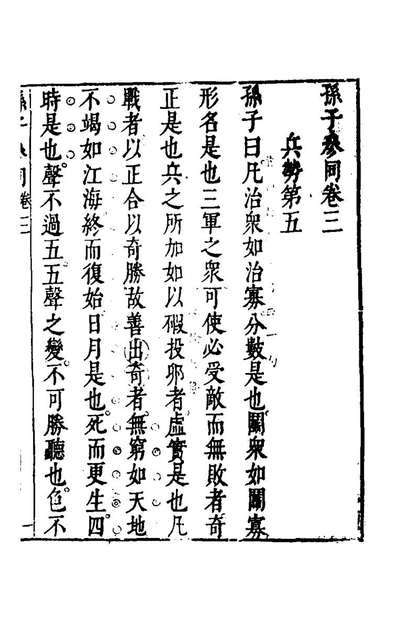 孫子參同卷三
兵勢第五
孫子曰凡治衆如治寡分數是也鬭衆如鬭寡
形名是也三軍之衆可使必受敵而無敗者奇
正是也兵之所加如以碬投卵者虛實是也凡
戰者以正合以奇勝故善出奇者無窮如天地
不竭如江海終而復始日月是也死而更生四
時是也聲不過五五聲之變不可勝聽也色不
孫子參同卷三
一